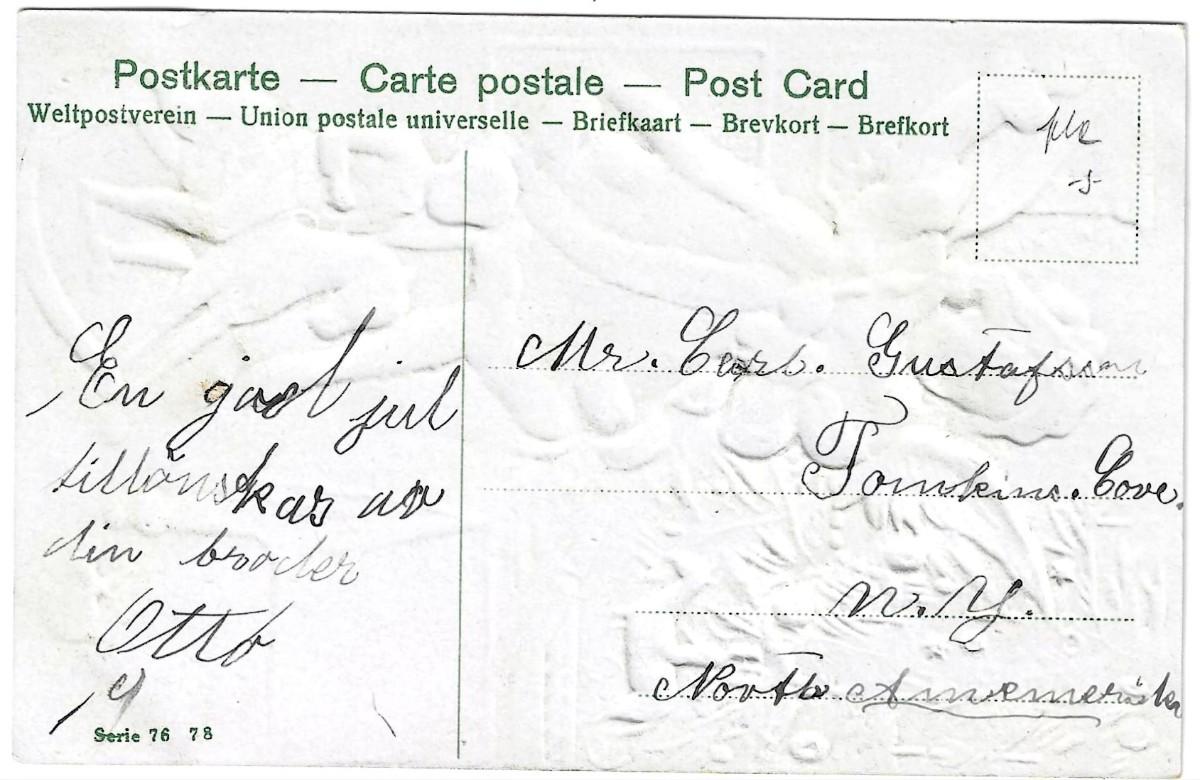 Postkarte — Carte postale — Post Card
Weltpostverein — Union postale universelle — Briefkaart — Brevkort — Brefkort
En god jul
tillönskas av
din broder
Otto
Serie 76 78
Mr. Carl. Gustafsson
Tomkins. Cove.
N. Y.
North